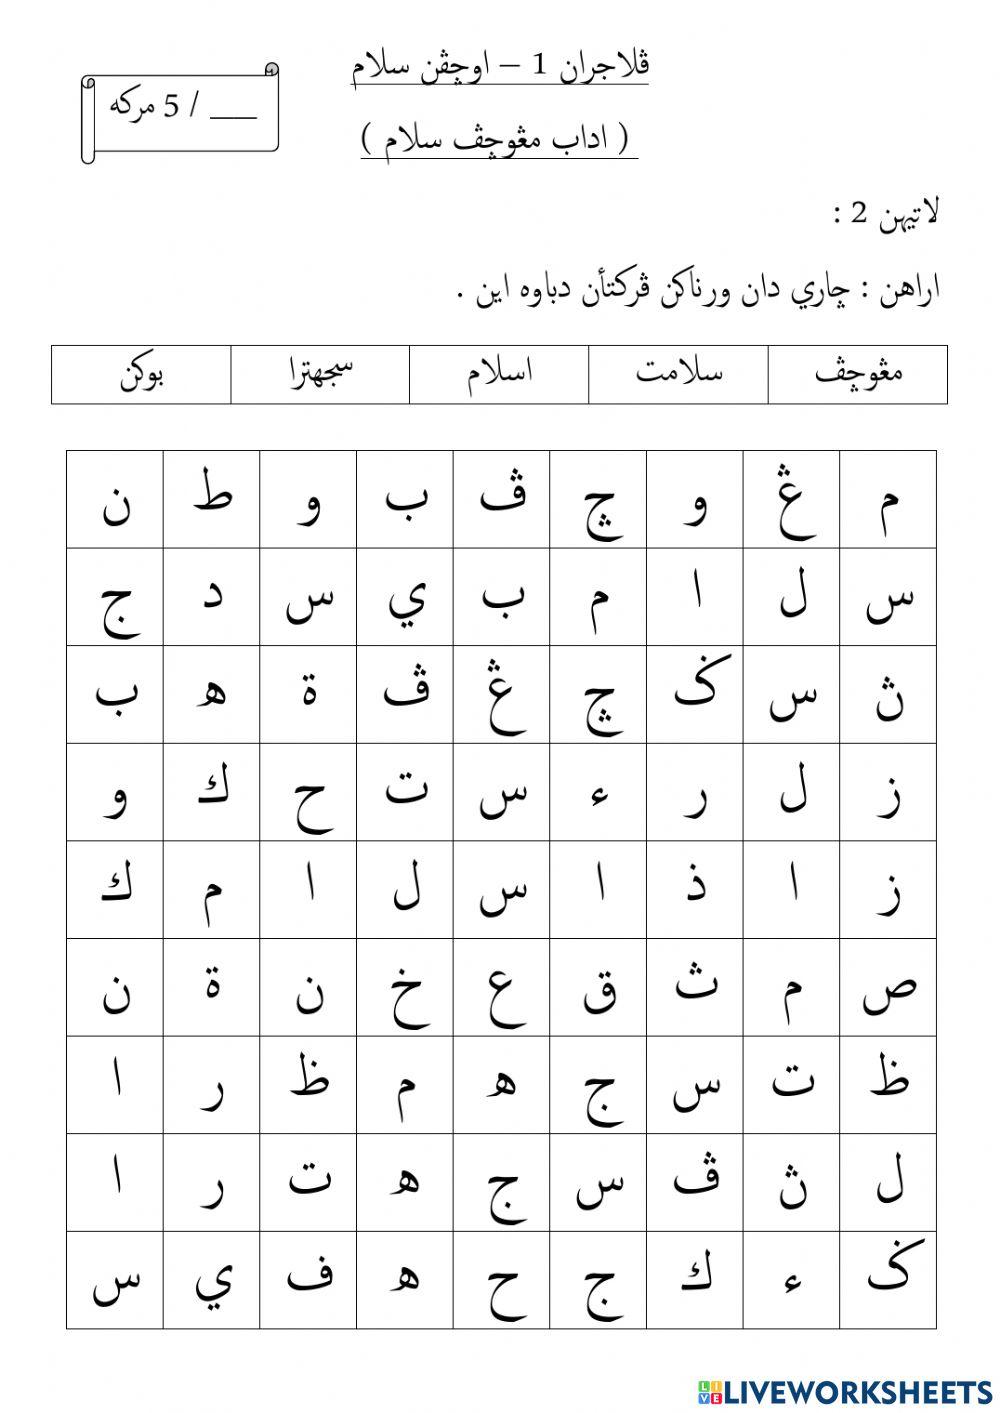 ڤلاجران 1 – اوچڤن سلام
___ / 5 مركه
( اداب مڠوچڤ سلام )
لاتيهن 2 :
اراهن : چاري دان ورناكن ڤركتأن دباوه اين .
مڠوچڤ سلامت اسلام سجهترا بوكن
م ڠ و چ ڤ ب و ط ن
س ل ا م ب ي س د ج
ڽ س ݢ چ ڠ ڤ ة ه ب
ز ل ر ء س ت ح ك و
ز ا ذ ا س ل ا م ك
ص م ث ق ع خ ن ة ن
ظ ت س ج ه م ظ ر ا
ل ڽ ڤ س ج ه ت ر ا
ݢ ء ك ج ح ه ف ي س
LIVEWORKSHEETS